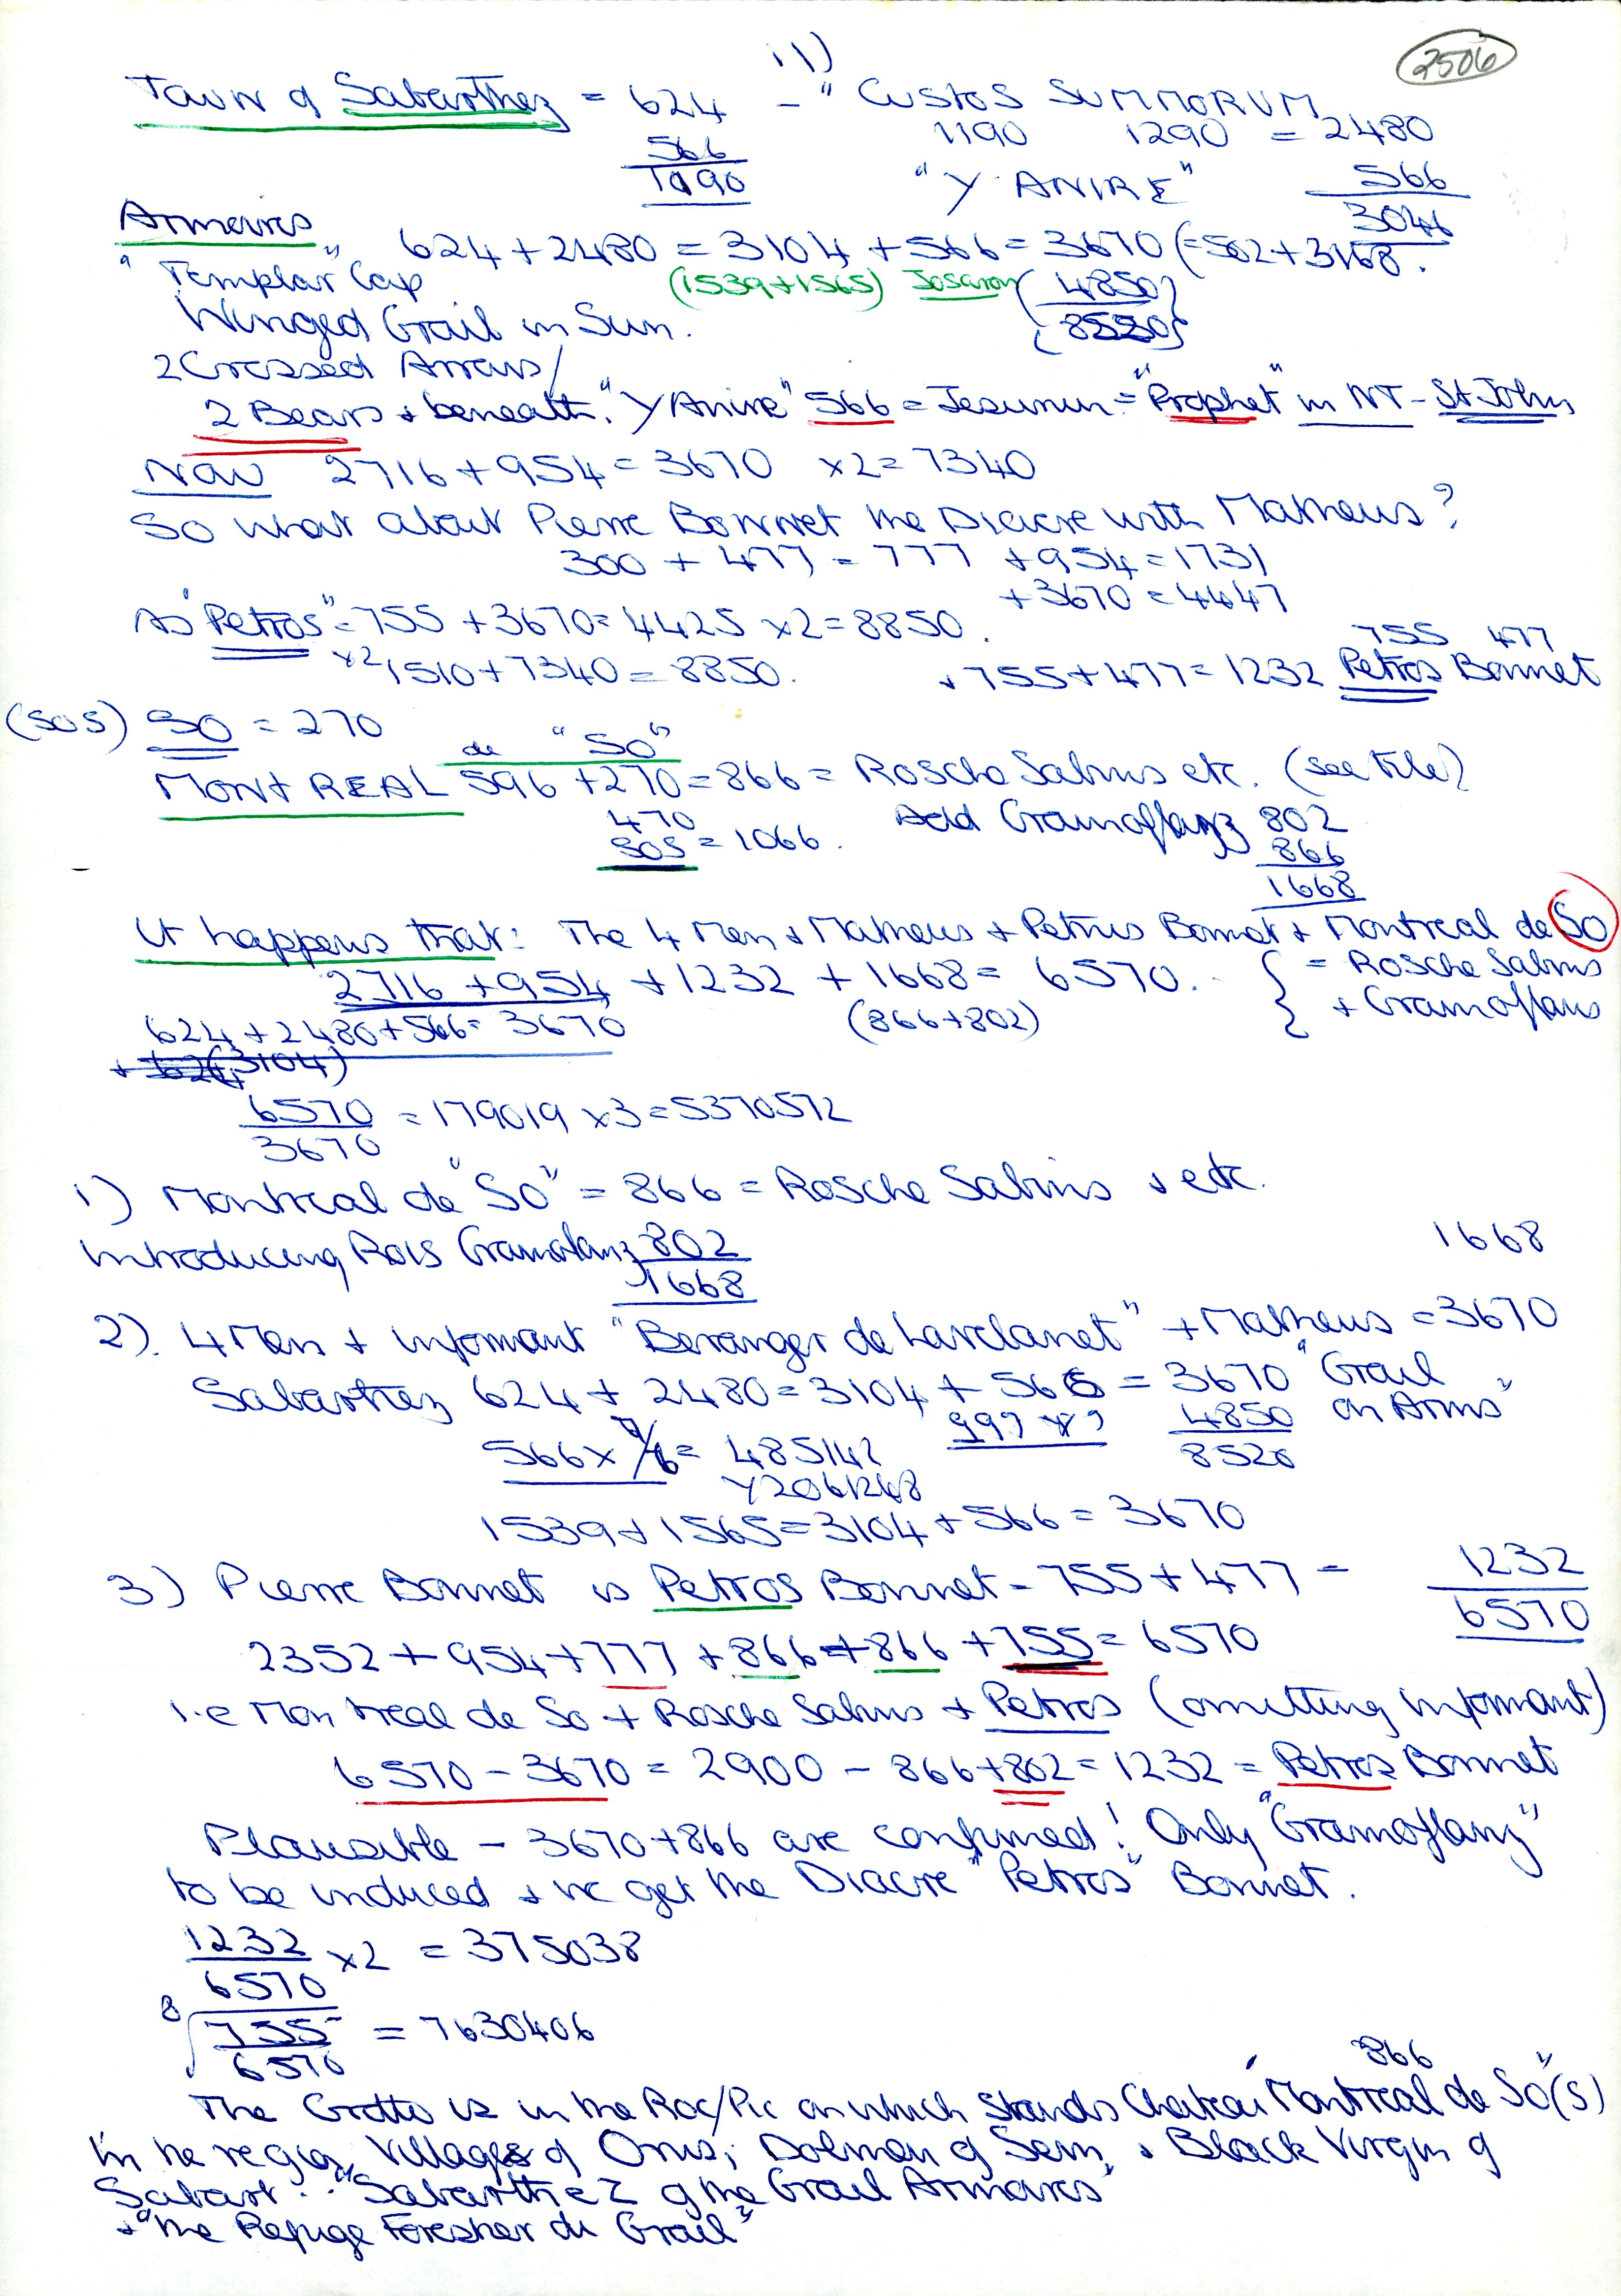 11)
2506
Town of Sabarthez = 624 - "CUSTOS SUMMORUM
566 1190 1290 = 2480
1190 "Y ANIRE" 566
3046
Armoires
624 + 2480 = 3104 + 566 = 3670 (=502 + 3168.
"Templar" Cap (1539+1565) (4850)
Winged Grail in Sun.
2 Crossed Arrows/
2 Bears + beneath. "Y Anire" 566 = Jesunun = "Prophet" in NT - St John
NOW 2716 + 954 = 3670 x2 = 7340
So what about Pierre Bonnet the Diacre with Matheus?
300 + 477 = 777 + 954 = 1731
+ 3670 = 4447
As "Petros" = 755 + 3670 = 4425 x2 = 8850.
x2 1510 + 7340 = 8850.
755 477
+ 755 + 477 = 1232 Petros Bonnet
(SOS) SO = 270
de "SO"
MONT REAL 596 + 270 = 866 = Rosche Sabins etc. (see File)
470
SOS = 1066.
Add Gramoflanz 802
866
1668
It happens that: The 4 Men + Matheus + Petrus Bonnet + Montreal de SO
2716 + 954 + 1232 + 1668 = 6570. { = Rosche Sabins
624 + 2480 + 566 = 3670 (866+802) + Gramoflans
(3104)
6570 = 179019 x3 = 5370572
3670
1) Montreal de "SO" = 866 = Rosche Sabins + etc.
Introducing Rois Gramoflanz 802 1668
1668
2). 4 Men + informant "Beranger de Lavelanet" + Matheus = 3670
Sabarthez 624 + 2480 = 3104 + 566 = 3670 "Grail
on Arms"
4850
566 x = 485142 8520
1539 + 1565 = 3104 + 566 = 3670
3) Pierre Bonnet is Petros Bonnet - 755 + 477 = 1232
6570
2352 + 954 + 777 + 866 + 866 + 755 = 6570
i.e Mon treal de So + Rosche Sabins + Petros (omitting informant)
6570 - 3670 = 2900 - 866 + 802 = 1232 = Petros Bonnet
Plausible - 3670 + 866 are confirmed! Only "Gramoflanz"
to be induced + we get the Diacre "Petros" Bonnet.
1232 x2 = 375038
6570
8√ 755 = 7630406
6570
866
The Grotto is in the Roc/Pic on which stands Chateau "Montreal de SO"(S)
In the region, Villages of Orus; Dolmen of Sem, + Black Virgin of
Sabart. "Sabarthez of the Grail Armoires"
+ "the Refuge Forester du Grail"